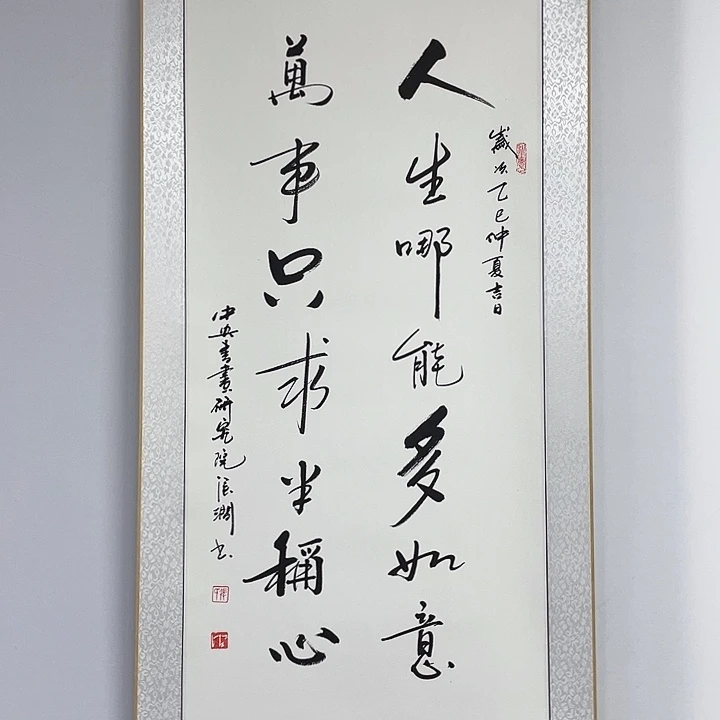 歲次乙巳仲夏吉日
人生哪能多如意
萬事只求半稱心
中央書畫研究院張潤书